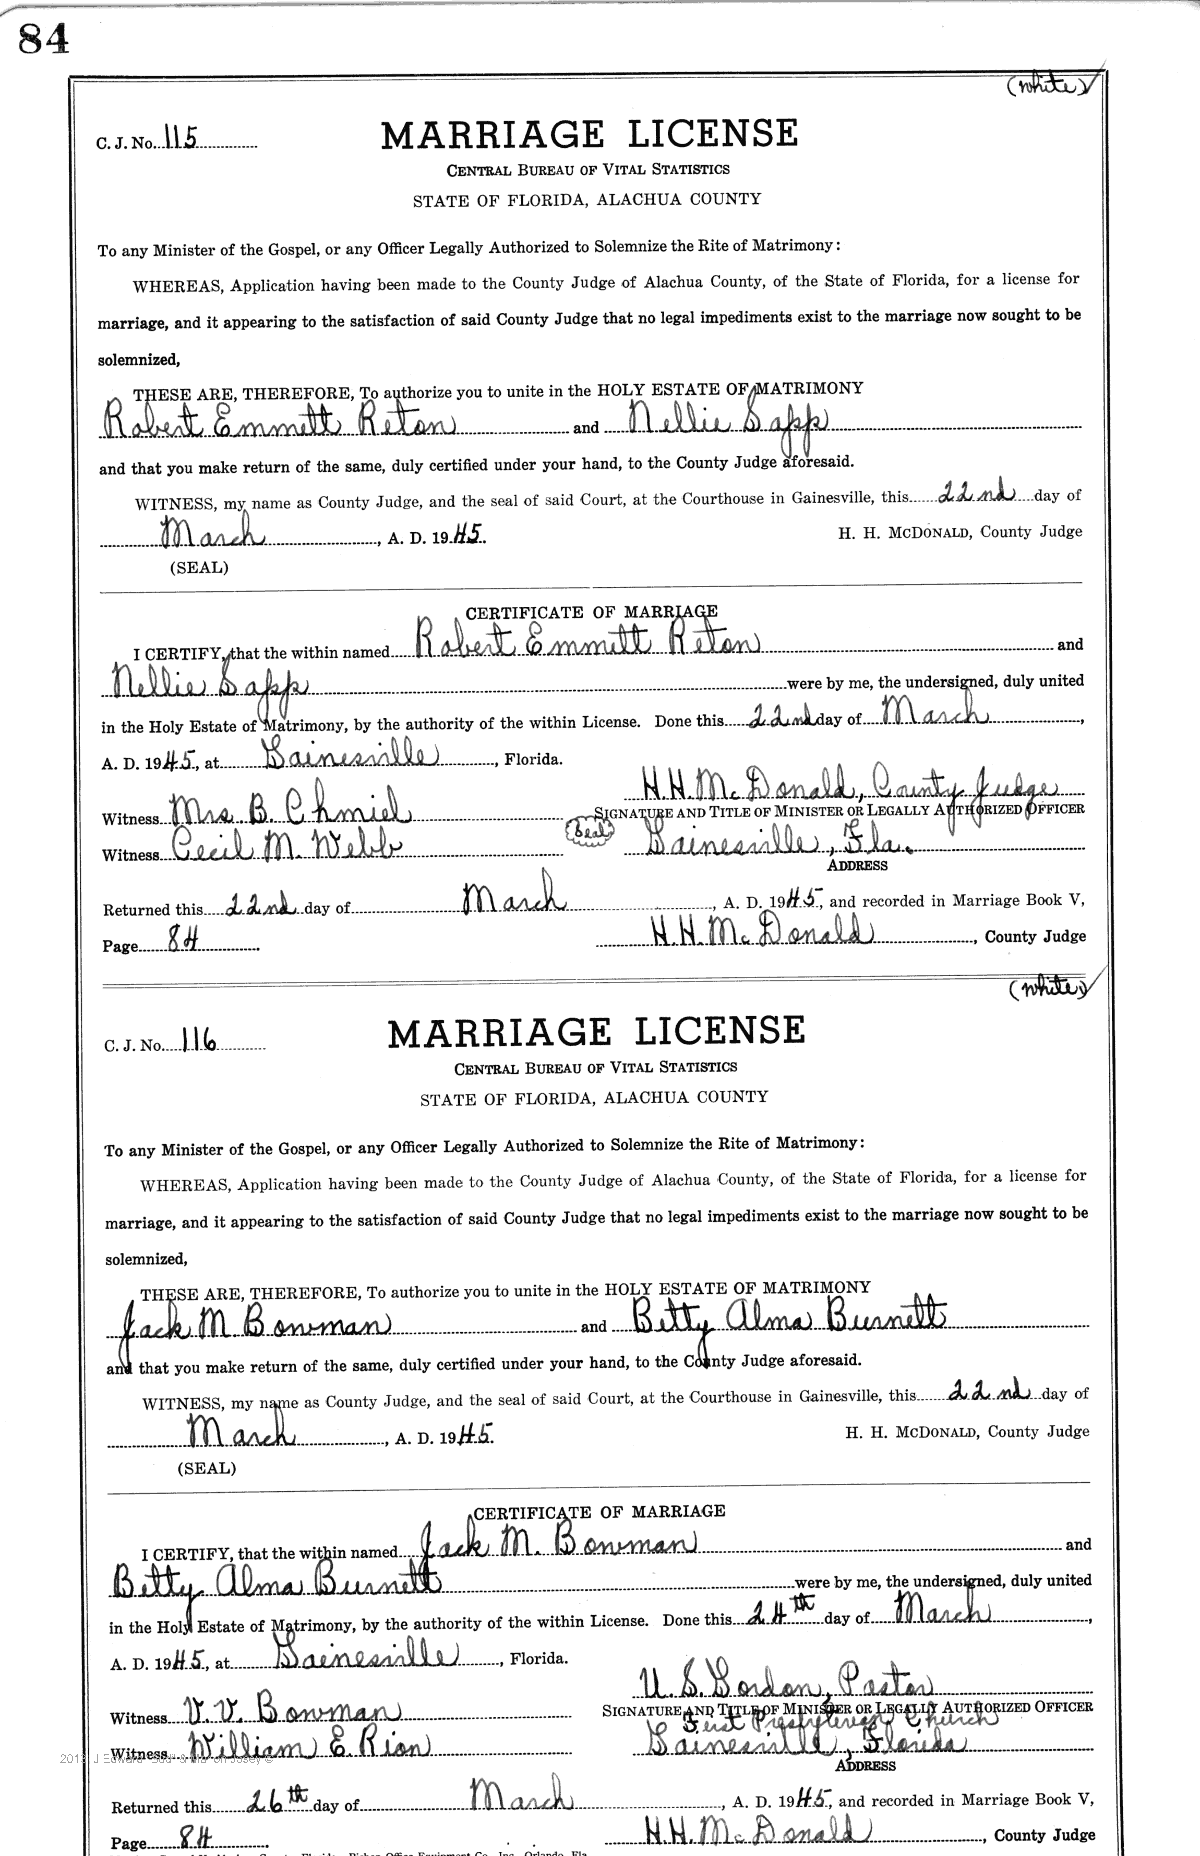 84
(white)
C. J. No. 115
MARRIAGE LICENSE
CENTRAL BUREAU OF VITAL STATISTICS
STATE OF FLORIDA, ALACHUA COUNTY
To any Minister of the Gospel, or any Officer Legally Authorized to Solemnize the Rite of Matrimony:
WHEREAS, Application having been made to the County Judge of Alachua County, of the State of Florida, for a license for
marriage, and it appearing to the satisfaction of said County Judge that no legal impediments exist to the marriage now sought to be
solemnized,
THESE ARE, THEREFORE, To authorize you to unite in the HOLY ESTATE OF MATRIMONY
Robert Emmett Reton and Nellie Sapp
and that you make return of the same, duly certified under your hand, to the County Judge aforesaid.
WITNESS, my name as County Judge, and the seal of said Court, at the Courthouse in Gainesville, this 22nd day of
March, A. D. 1945. H. H. MCDONALD, County Judge
(SEAL)
CERTIFICATE OF MARRIAGE
I CERTIFY, that the within named Robert Emmett Reton and
Nellie Sapp were by me, the undersigned, duly united
in the Holy Estate of Matrimony, by the authority of the within License. Done this 22nd day of March,
A. D. 1945, at Gainesville, Florida.
H. H. McDonald, County Judge
Witness Mrs B. Chmiel SIGNATURE AND TITLE OF MINISTER OR LEGALLY AUTHORIZED OFFICER
Witness Cecil M. Webb (Seal) Gainesville, Fla.
ADDRESS
Returned this 22nd day of March, A. D. 1945, and recorded in Marriage Book V,
Page 84 H. H. McDonald, County Judge
(white)
C. J. No. 116
MARRIAGE LICENSE
CENTRAL BUREAU OF VITAL STATISTICS
STATE OF FLORIDA, ALACHUA COUNTY
To any Minister of the Gospel, or any Officer Legally Authorized to Solemnize the Rite of Matrimony:
WHEREAS, Application having been made to the County Judge of Alachua County, of the State of Florida, for a license for
marriage, and it appearing to the satisfaction of said County Judge that no legal impediments exist to the marriage now sought to be
solemnized,
THESE ARE, THEREFORE, To authorize you to unite in the HOLY ESTATE OF MATRIMONY
Jack M Bowman and Betty Alma Burnett
and that you make return of the same, duly certified under your hand, to the County Judge aforesaid.
WITNESS, my name as County Judge, and the seal of said Court, at the Courthouse in Gainesville, this 22nd day of
March, A. D. 1945. H. H. MCDONALD, County Judge
(SEAL)
CERTIFICATE OF MARRIAGE
I CERTIFY, that the within named Jack M. Bowman and
Betty Alma Burnett were by me, the undersigned, duly united
in the Holy Estate of Matrimony, by the authority of the within License. Done this 24th day of March,
A. D. 1945, at Gainesville, Florida.
U. S. Gordon, Pastor
Witness V. V. Bowman SIGNATURE AND TITLE OF MINISTER OR LEGALLY AUTHORIZED OFFICER
First Presbyterian Church
Witness William E Rion Gainesville, Florida
ADDRESS
Returned this 26th day of March, A. D. 1945, and recorded in Marriage Book V,
Page 84 H. H. McDonald, County Judge
Office Equipment Co., Inc., Orlando, Fla.